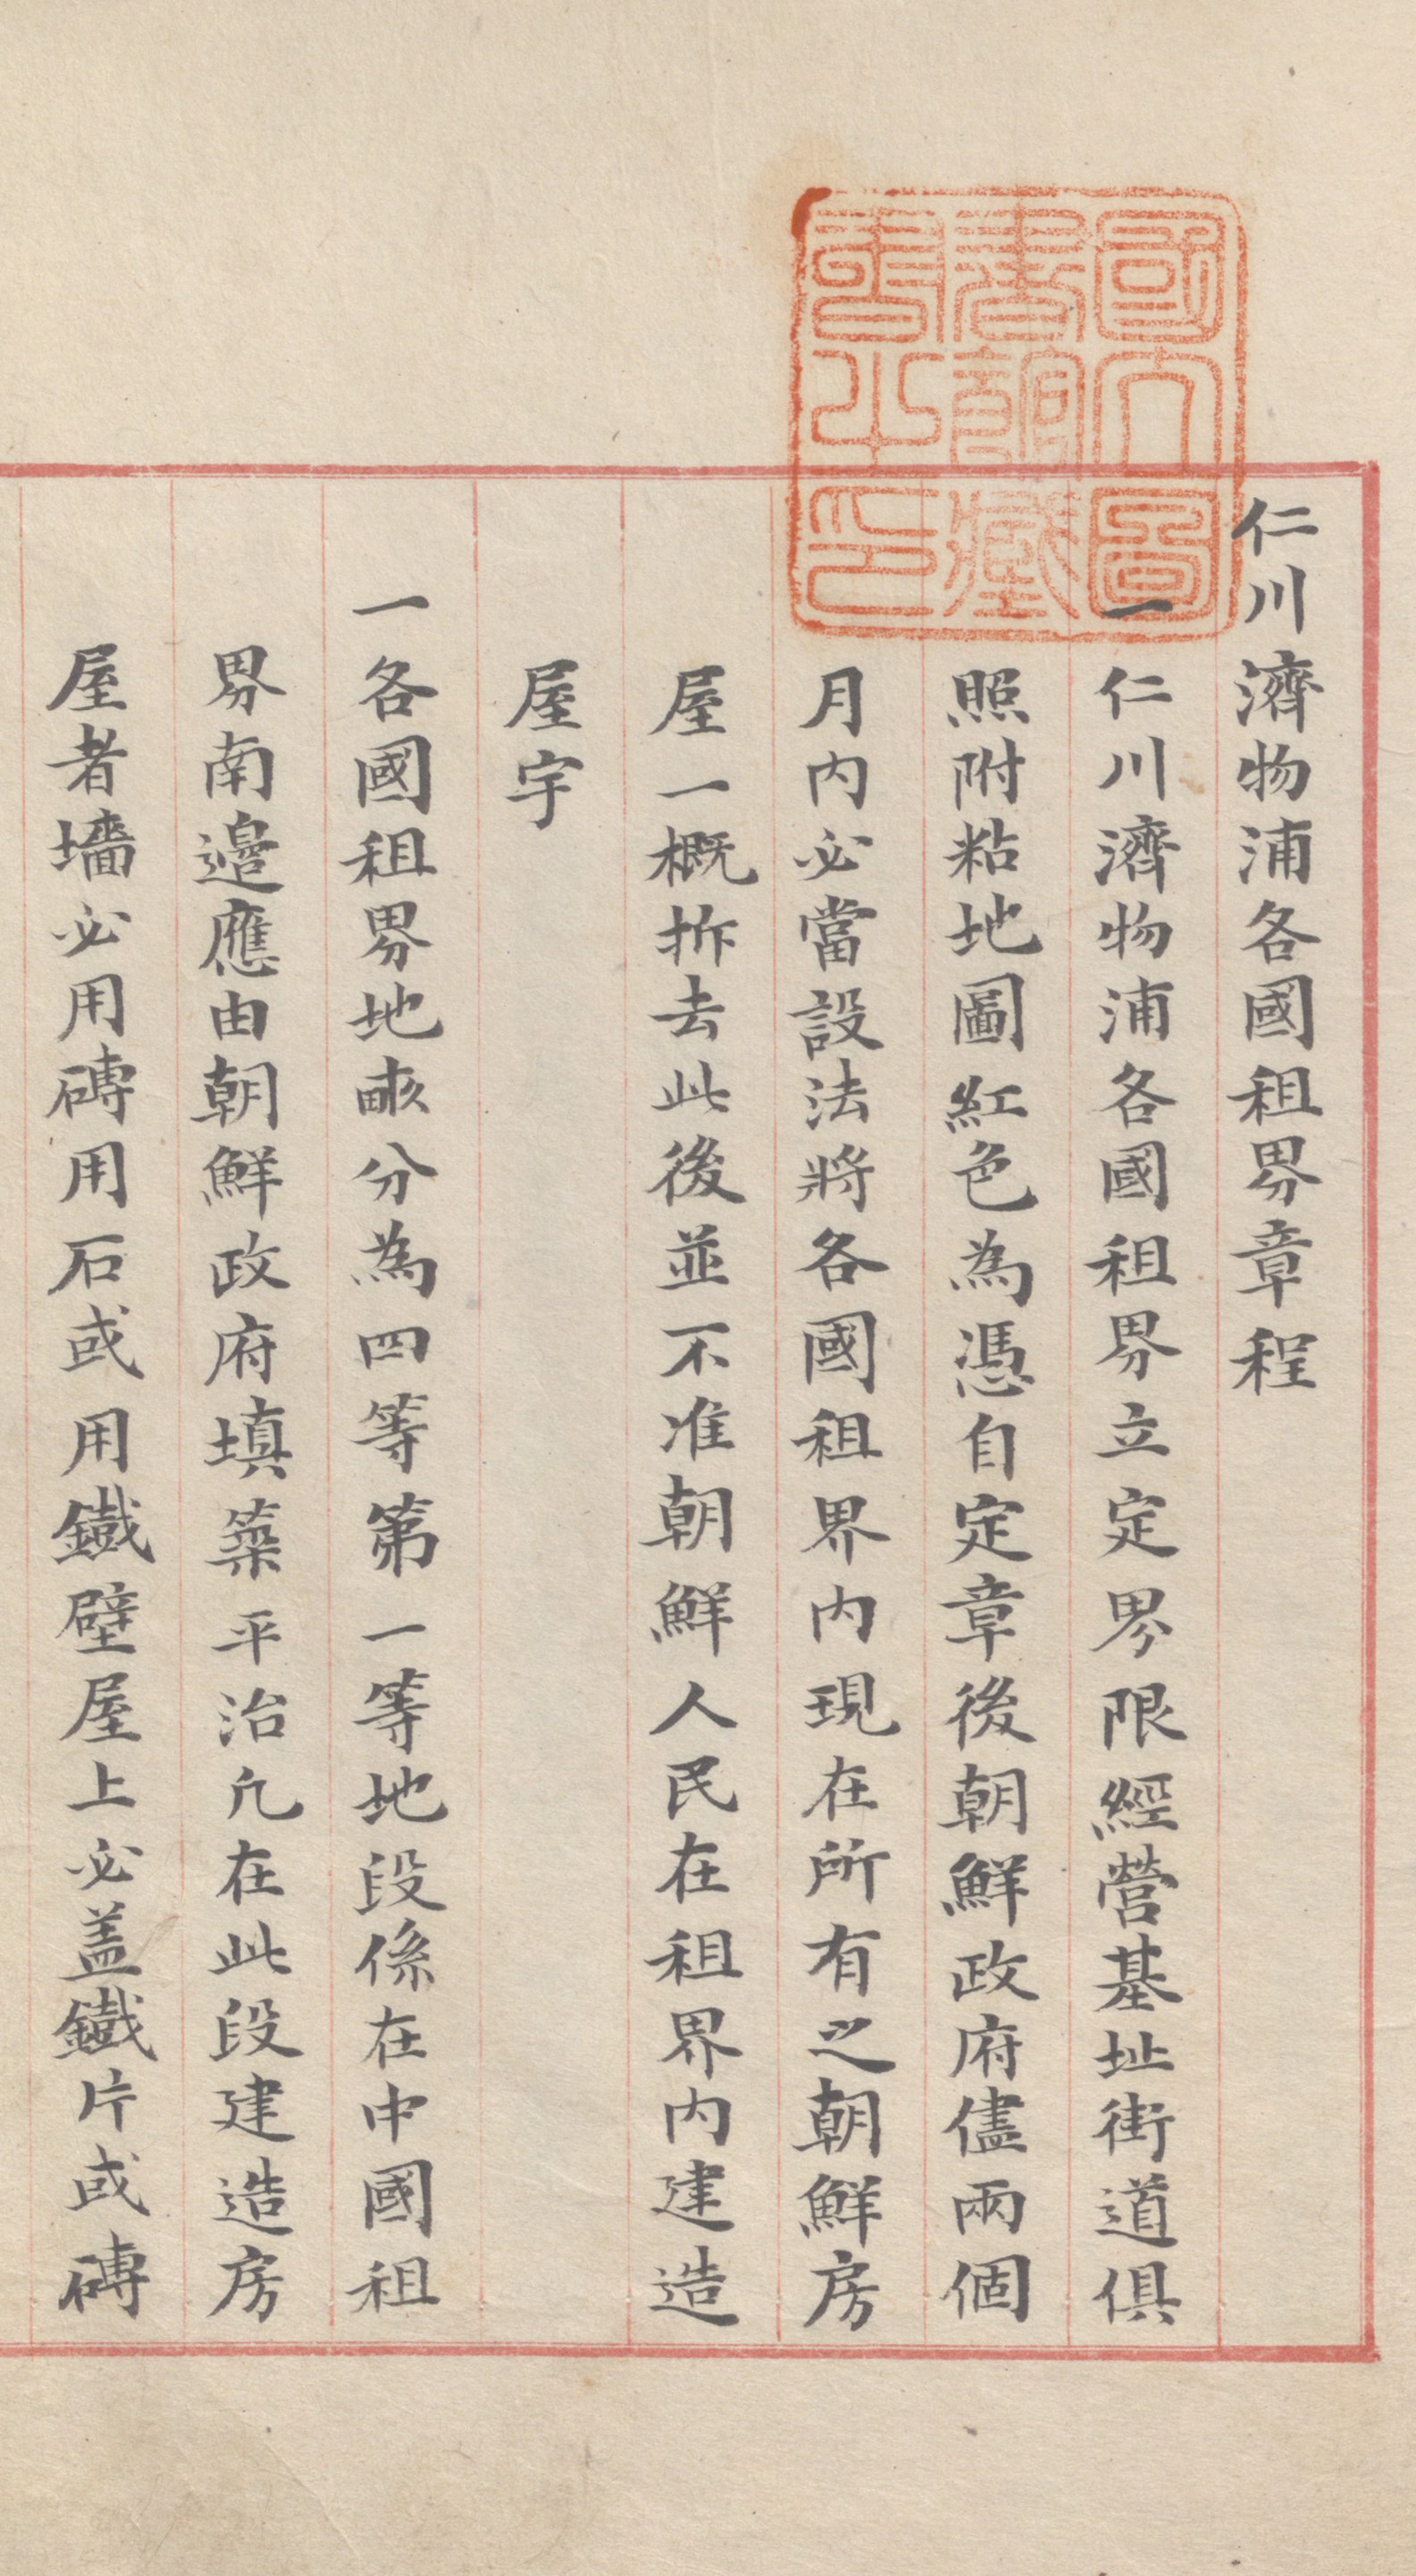 國圖
書館藏
書之印
仁川濟物浦各國租界章程
一仁川濟物浦各國租界立定界限經營基址街道俱
照附粘地圖紅色為憑自定章後朝鮮政府儘兩個
月內必當設法將各國租界內現在所有之朝鮮房
屋一概拆去此後並不准朝鮮人民在租界內建造
屋宇
一各國租界地畝分為四等第一等地段係在中國租
界南邊應由朝鮮政府填築平治凡在此段建造房
屋者墻必用磚用石或用鐵壁屋上必盖鐵片或磚